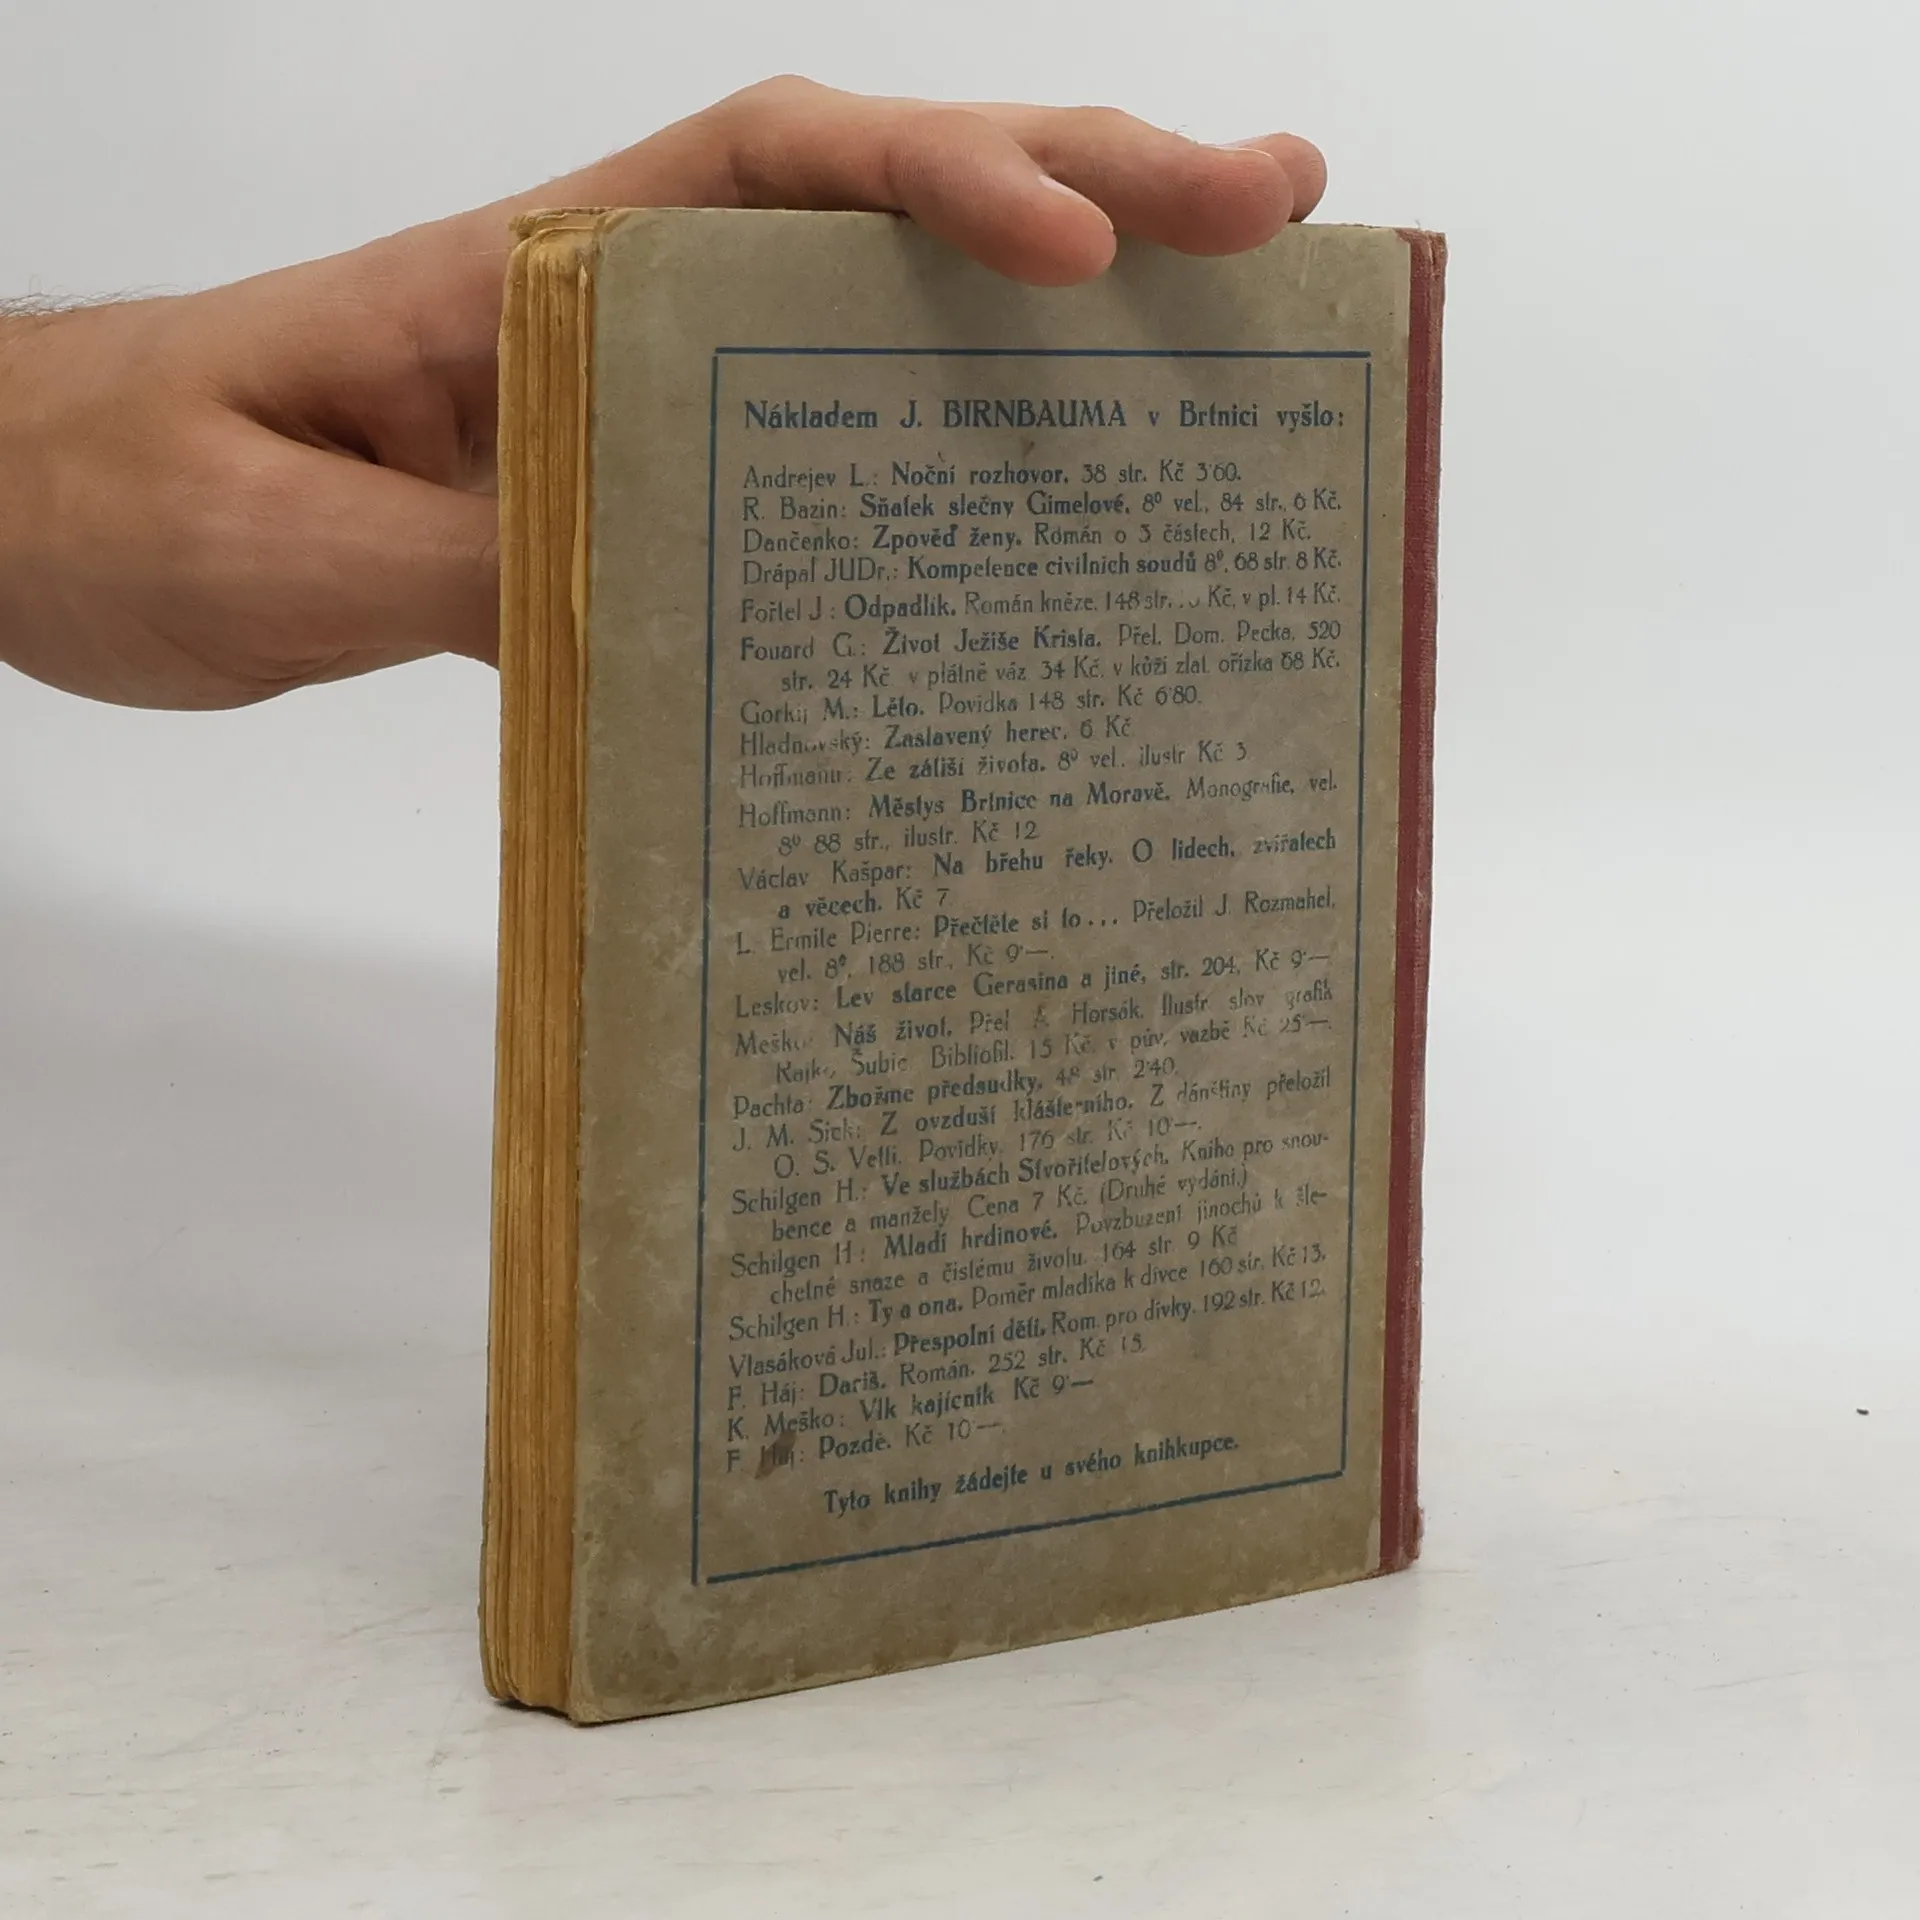 Nákladem J. BIRNBAUMA v Brtnici vyšlo:
Andrejev L.: Noční rozhovor. 38 str. Kč 3·60.
R. Bazin: Sňatek slečny Gimelové. 8⁰ vel., 84 str., 6 Kč.
Dančenko: Zpověď ženy. Román o 3 částech, 12 Kč.
Drápal JUDr.: Kompetence civilních soudů 8⁰, 68 str. 8 Kč.
Fořtel J.: Odpadlík. Román kněze. 148 str. Kč, v pl. 14 Kč.
Fouard G.: Život Ježíše Krista. Přel. Dom. Pecka. 520
str. 24 Kč v plátně váz 34 Kč, v kůži zlat. ořízka 68 Kč.
Gorkij M.: Léto. Povídka 148 str. Kč 6·80.
Hladnovský: Zastavený herec. 6 Kč
Hoffmann: Ze zátiší života. 8⁰ vel. ilustr Kč 3
Hoffmann: Městys Brtnice na Moravě. Monografie, vel.
8⁰ 88 str., ilustr. Kč 12
Václav Kašpar: Na břehu řeky. O lidech, zvířatech
a věcech. Kč 7
L. Ermile Pierre: Přečtěte si to... Přeložil J. Rozmahel,
vel. 8⁰, 188 str., Kč 9·—.
Leskov: Lev starce Gerasina a jiné, str. 204, Kč 9·—
Meško: Náš život. Přel A. Horsák. Ilustr. slov grafik
Rajko Šubic. Bibliofil. 15 Kč. v pův. vazbě Kč 25·—.
Pachta: Zbořme předsudky. 48 str. 2·40.
J. M. Sick: Z ovzduší klášterního. Z dánštiny přeložil
O. S. Vetti. Povídky. 176 str. Kč 10·—.
Schilgen H.: Ve službách Stvořitelových. Kniha pro snou-
bence a manžely. Cena 7 Kč. (Druhé vydání.)
Schilgen H: Mladí hrdinové. Povzbuzení jinochů k šle-
chetné snaze a čistému životu. 164 str 9 Kč
Schilgen H.: Ty a ona. Poměr mladíka k dívce 160 str. Kč 13.
Vlasáková Jul.: Přespolní děti. Rom. pro dívky. 192 str. Kč 12.
F. Háj: Dariš. Román. 252 str. Kč 15.
K. Meško: Vlk kajícník Kč 9·—
F. Háj: Pozdě. Kč 10·—.
Tyto knihy žádejte u svého knihkupce.